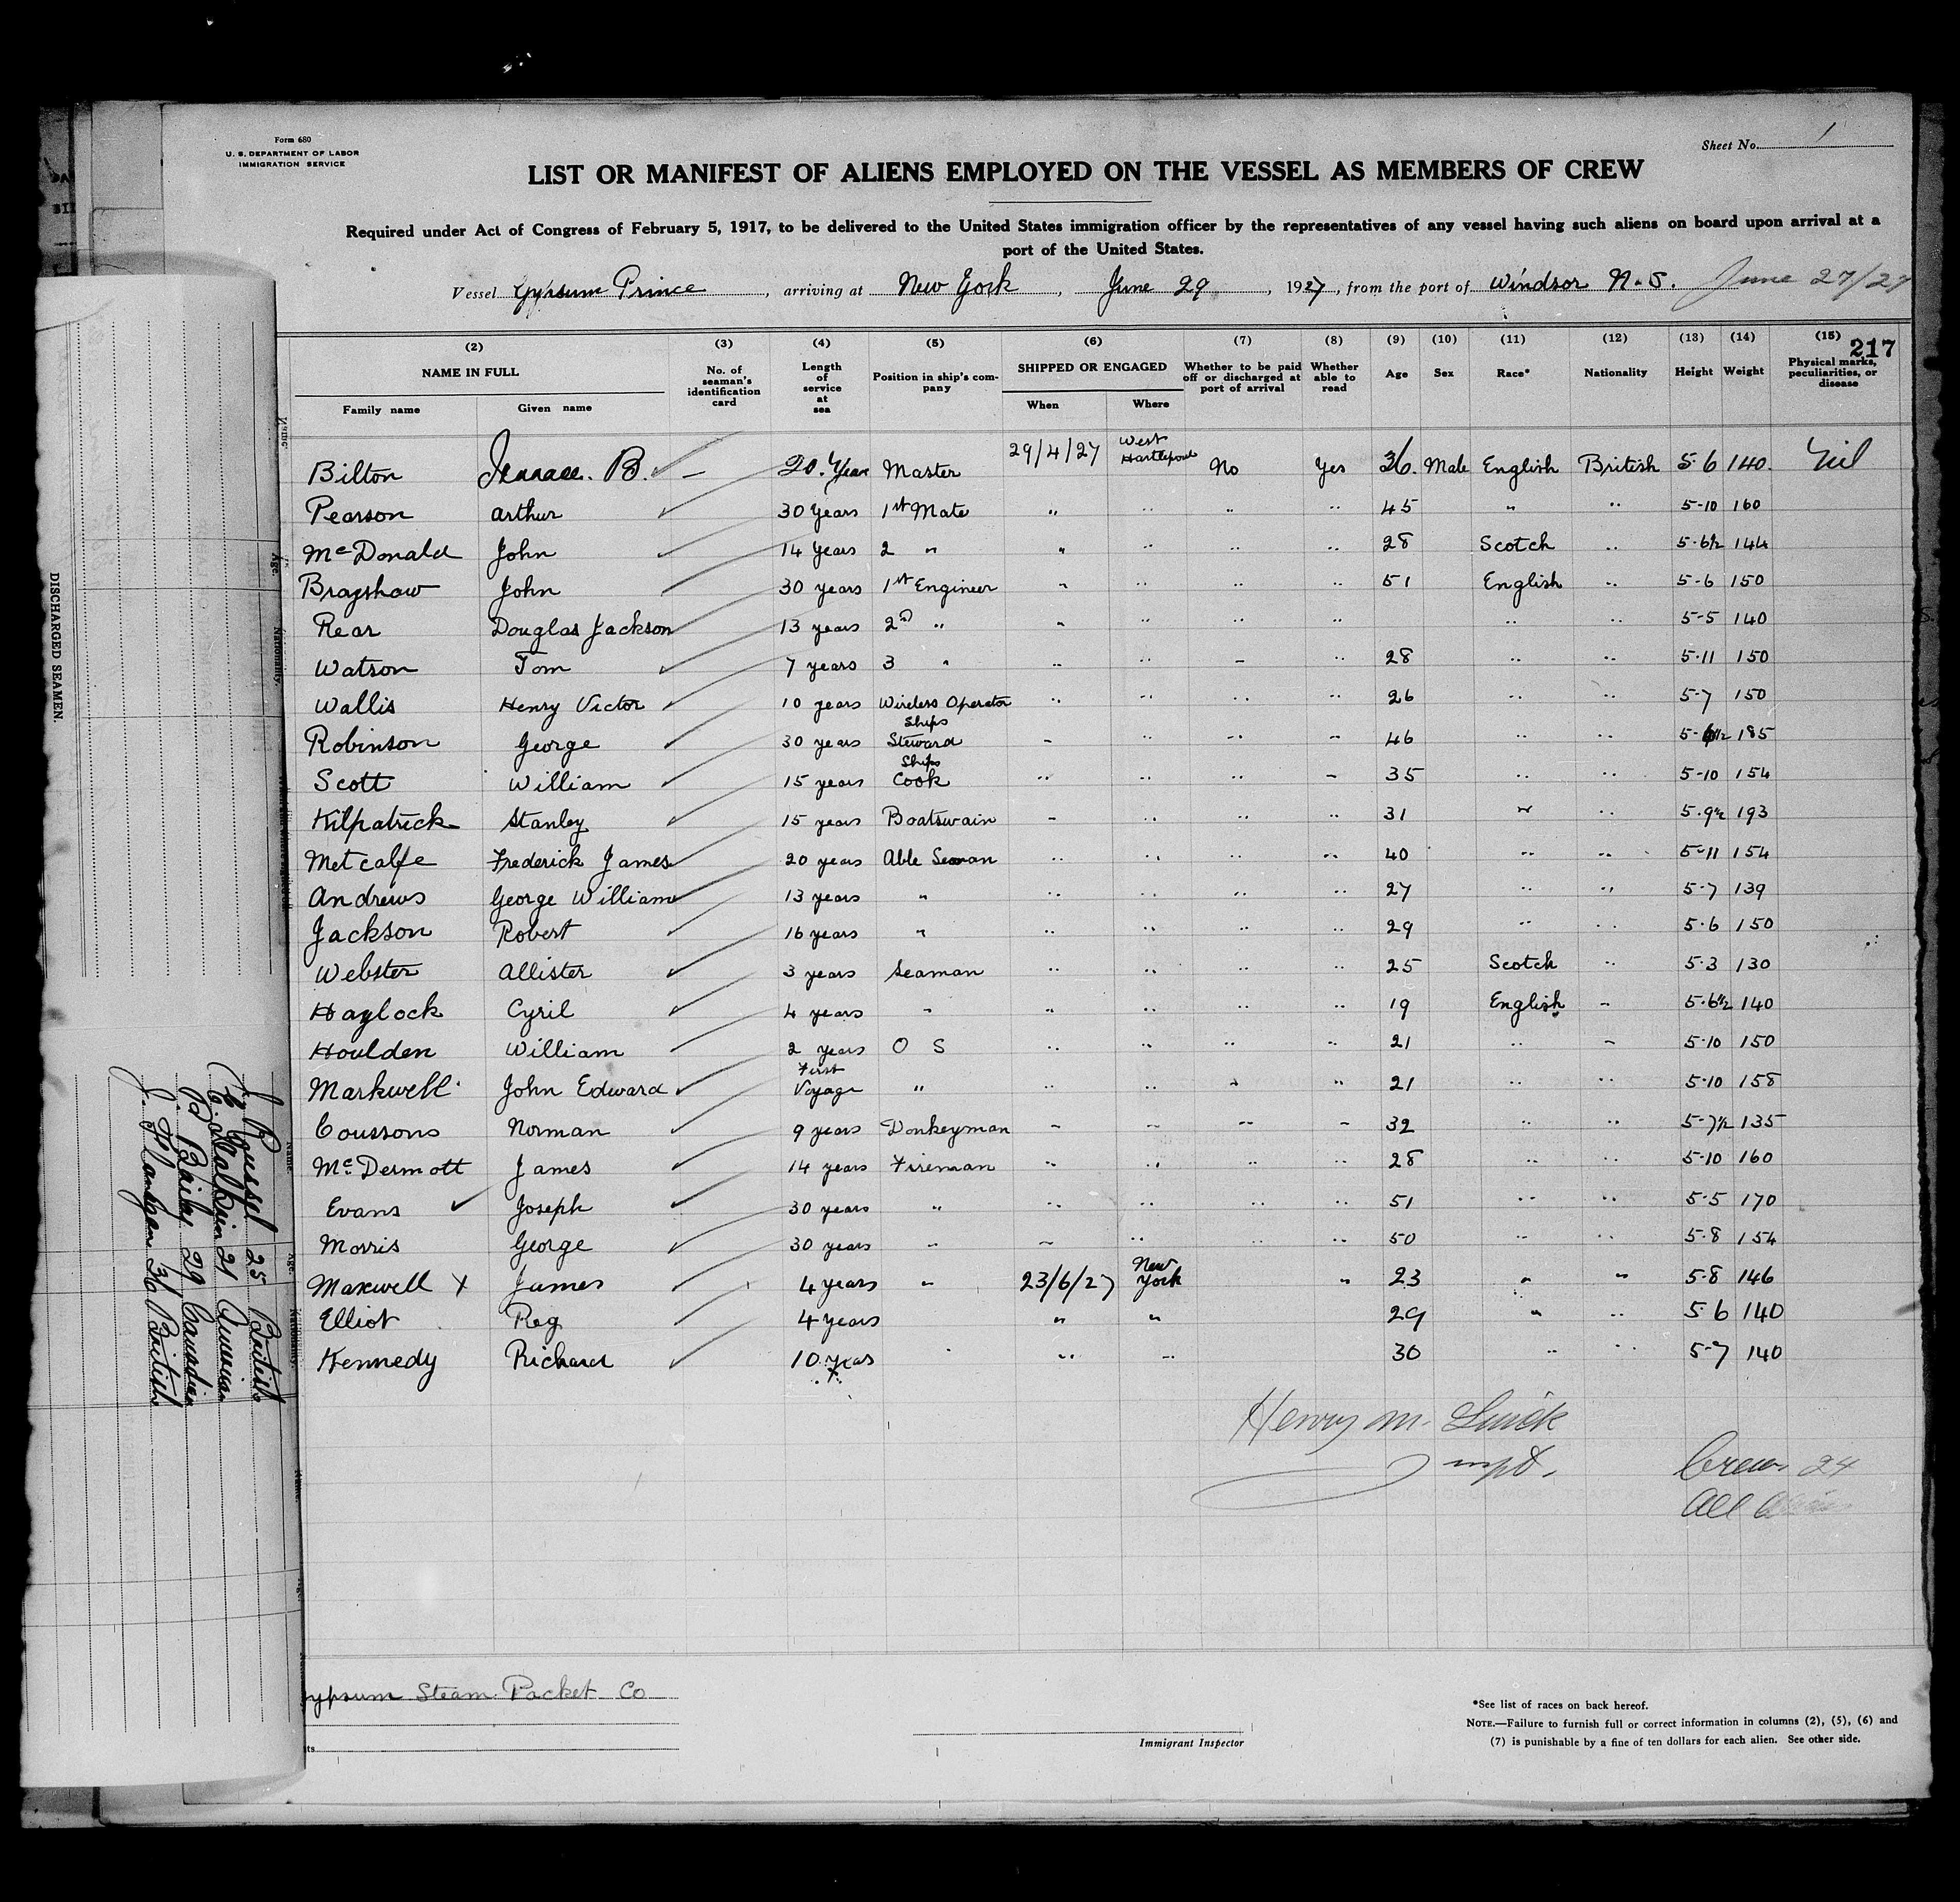 Form 680
U. S. DEPARTMENT OF LABOR
IMMIGRATION SERVICE
Sheet No. 1
LIST OR MANIFEST OF ALIENS EMPLOYED ON THE VESSEL AS MEMBERS OF CREW
Required under Act of Congress of February 5, 1917, to be delivered to the United States immigration officer by the representatives of any vessel having such aliens on board upon arrival at a
port of the United States.
Vessel Gypsum Prince, arriving at New York, June 29, 1927, from the port of Windsor N.S. June 27/27
217
(2) (3) (4) (5) (6) (7) (8) (9) (10) (11) (12) (13) (14) (15)
NAME IN FULL Family name Given name No. of seaman's identification card Length of service at sea Position in ship's company SHIPPED OR ENGAGED When Where Whether to be paid off or discharged at port of arrival Whether able to read Age Sex Race* Nationality Height Weight Physical marks, peculiarities, or disease
Bilton B. — 20 Year Master 29/4/27 West Hartlepool No Yes 36. Male English British 5-6 140. Nil
Pearson Arthur 30 years 1st Mate " " " " 45 " " 5-10 160
McDonald John 14 years 2 " " " " " 28 Scotch " 5-6½ 144
Brayshaw John 30 years 1st Engineer " " " " 51 English " 5-6 150
Rear Douglas Jackson 13 years 2nd " " " " " " " 5-5 140
Watson Tom 7 years 3 " " " " " 28 " " 5-11 150
Wallis Henry Victor 10 years Wireless Operator " " " " 26 " " 5-7 150
Robinson George 30 years Ships Steward " " " " 46 " " 185
Scott William 15 years Ships Cook " " " " 35 " " 5-10 154
Kilpatrick Stanley 15 years Boatswain " " " " 31 " " 5-9½ 193
Metcalfe Frederick James 20 years Able Seaman " " " " 40 " " 5-11 154
Andrews George William 13 years " " " " " 27 " " 5-7 139
Jackson Robert 16 years " " " " " 29 " " 5-6 150
Webster Allister 3 years Seaman " " " " 25 Scotch " 5-3 130
Haylock Cyril 4 years " " " " " 19 English " 5-6½ 140
Houlden William 2 years O S " " " " 21 " " 5-10 150
Markwell John Edward First Voyage " " " " " 21 " " 5-10 158
Coussons Norman 9 years Donkeyman " " " " 32 " " 5-7½ 135
McDermott James 14 years Fireman " " " " 28 " " 5-10 160
Evans Joseph 30 years " " " " " 51 " " 5-5 170
Morris George 30 years " " " " " 50 " " 5-8 154
Maxwell X James 4 years " 23/6/27 New York " 23 " " 5-8 146
Elliot Reg 4 years " " 29 " " 5 6 140
Kennedy Richard 10 years " " 30 " " 5-7 140
Henry M.
Crew 24
All
Gypsum Steam Packet Co
Immigrant Inspector
*See list of races on back hereof.
NOTE.—Failure to furnish full or correct information in columns (2), (5), (6) and
(7) is punishable by a fine of ten dollars for each alien. See other side.
DISCHARGED SEAMEN.
Name. Age. Nationality.
J. Russel 25 British
21
B. Bailey 29 Canadian
J. 36 British